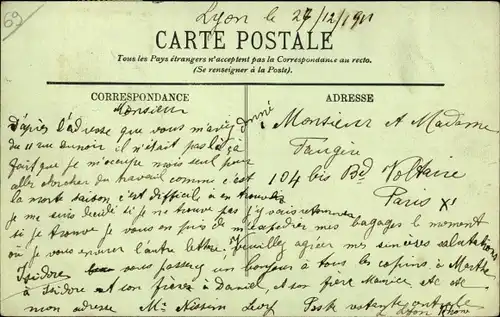 69
Lyon le 27/12/1911
CARTE POSTALE
Tous les Pays étrangers n'acceptent pas la Correspondance au recto.
(Se renseigner à la Poste).
CORRESPONDANCE
ADRESSE
Monsieur
D'après l'adresse que vous m'aviez donné
du 11 rue il n'était pas là
fait que je m'occupe mais seul pour
aller chercher du travail comme c'est
la morte saison c'est difficile à en trouver
je me suis décidé si je ne trouve pas j'y vais retourner
si je trouve je vous en prie de m'expédier mes bagages le moment
où je vous enverez l'autre lettre. Veuillez agréer mes sincères salutations
Isidore vous passerez un bonjour à tous les copins, à Marthe
à Isidore et son frère, à Daniel, et son frère Maurice
mon adresse Mr Nissim Levy Poste restante
à Lyon Rhône
Monsieur et Madame
104 bis Bd Voltaire
Paris XI